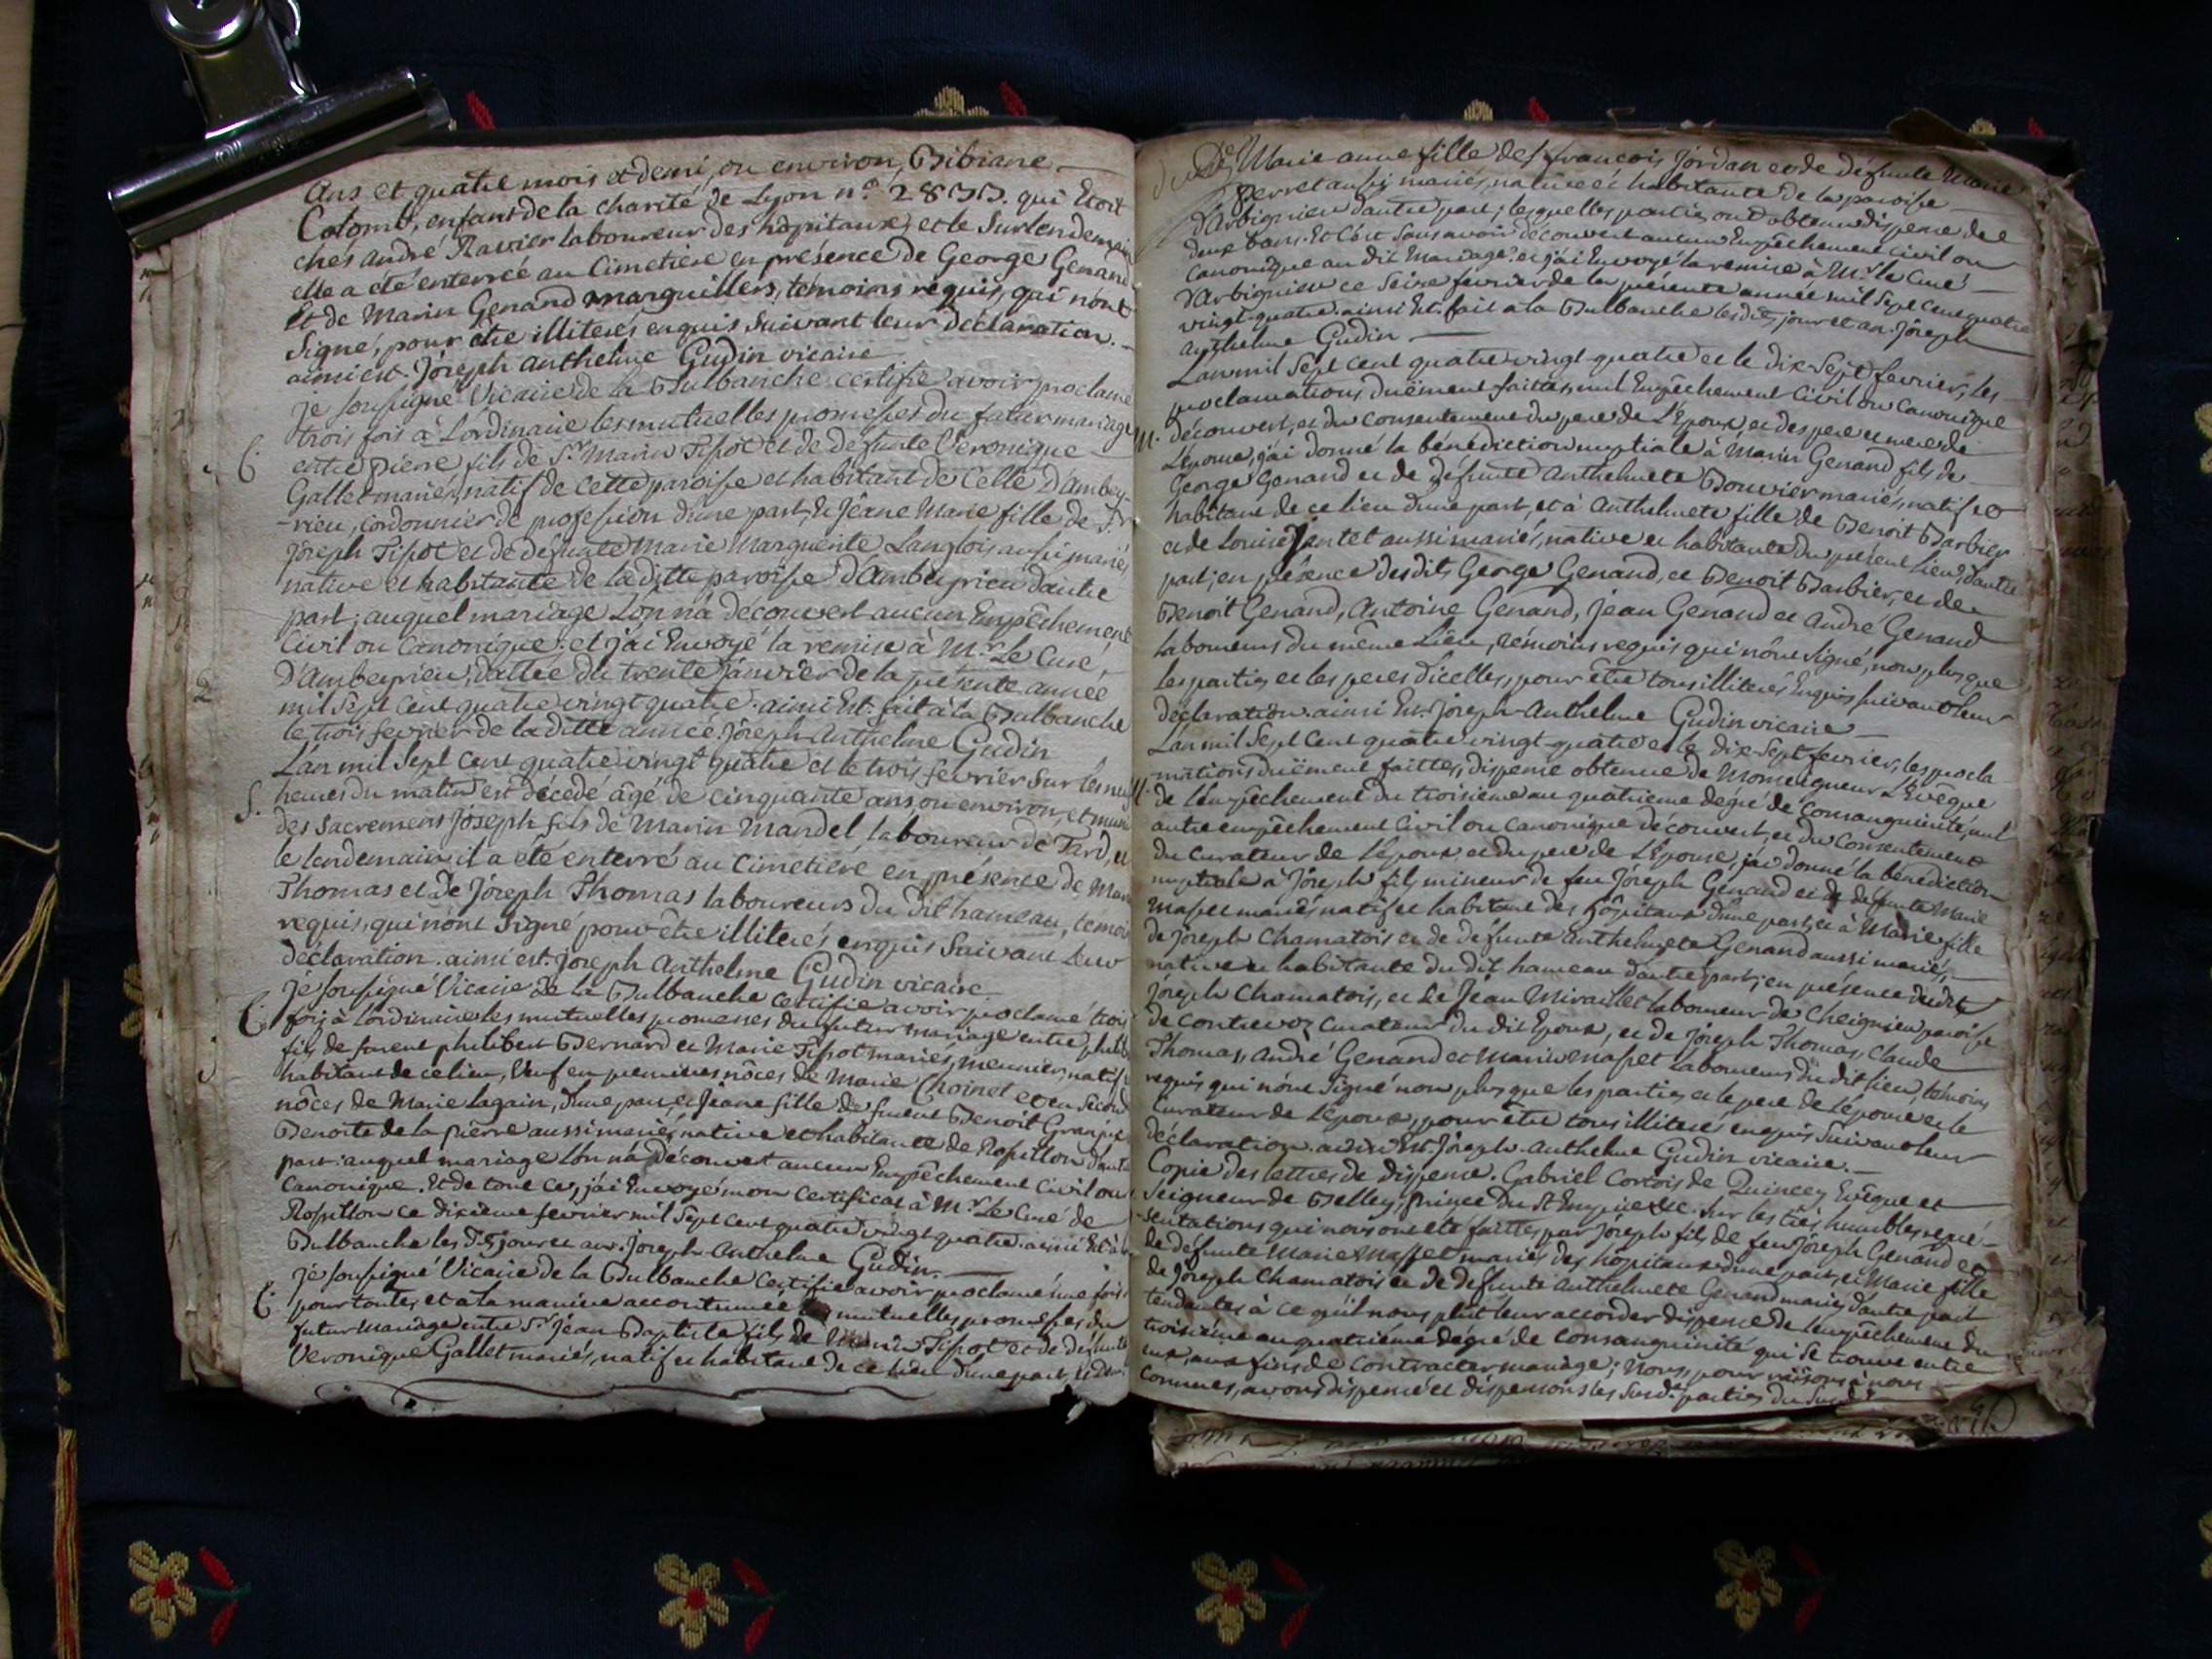 Ans et quatre mois et demi, ou environ, Bibiane
Colomb, enfant de la charité de Lyon n.° 2833. qui Etoit
chés andré Ravier laboureur des hôpitaux; et le Surlendemain
elle a été enterrée au Cimetiere en présence de George Genand
et de Marin Genand marguilliers, témoins requis, qui n'ont
Signé, pour être illiterés enquis Suivant leur déclaration.
ainsi est, Jóseph anthelme Gudin vicaire
je soussigné Vicaire de la Bulbanche certifie avoir proclamé
trois fois à L'ordinaire les mutuelles promesses du futur mariage
C. entre pierre fils de Sr. Marin Tissot et de defunte Veronique
Gallet mariés, natif de cette paroisse et habitant de Celle d'Ambey-
-rieu, cordonnier de profession d'une part, & Jéane Marie fille de Sr
Jóseph Tissot et de défunte Marie Marguerite Langlois aussi mariés,
native et habitante de la ditte paroisse d'Ambeyrieu d'autre
part; auquel mariage L'on n'a découvert aucun Empêchement
Civil ou Canonique. et j'ai Envoyé la remise à Mr. Le Curé
D'Ambeyrieu, dattée du trente Janvier de la présente année
mil Sept Cent quatre vingt quatre. ainsi Est. fait à la Bulbanche
le trois fevrier de la ditte année. Jóseph Anthelme Gudin
L'an mil Sept Cent quatre vingt quatre et le trois fevrier Sur les neuf
S. heures du matin est décédé âgé de cinquante ans ou environ, et muni
des Sacremens Jóseph fils de Marin Mandel, laboureur de Tard, et
le lendemain il a été enterré au Cimetiere en présence de Marin
Thomas et de Jóseph Thomas laboureurs du dit hameau, témoins
requis, qui n'ont Signé pour être illiterés enquis Suivant Leur
déclaration. ainsi est. Jóseph Anthelme Gudin vicaire
je soussigné Vicaire de la Bulbanche certifie avoir proclamé trois
C. fois à L'ordinaire les mutuelles promesses du futur mariage entre philib
fils de furent philibert Bernard et Marie Tissot mariés, meunier, natif
habitant de ce lieu, Veuf en premieres nôces de Marie Choinet et en second
nôces de Marie Lagain, d'une part, et Jéane fille de furent Benoit Granjux
Benoite de la pierre aussi mariés, native et habitante de Rossillon d'autre
part: auquel mariage L'on n'a découvert aucun Empêchement Civil ou
Canonique. Et de tout ce, j'ai Envoyé mon Certificat à Mr. Le Curé de
Rossillon ce dixieme fevrier mil Sept Cent quatre vingt quatre. ainsi Est à la
Bulbanche les d.s jour et an. Joseph Anthelme Gudin.
je soussigné Vicaire de la Bulbanche certifie avoir proclamé une fois
C. pour toutes, et a la maniere accoutumée mutuelles promesses du
futur Mariage entre Sr Jean Baptiste fils de Marin Tissot et de défunte
Veronique Gallet mariés, natif et habitant de ce lieu d'une part, et dem.
De Marie anne fille de francois Jórdan et de défunte Marie
Perret aussi mariés, native et habitante de la paroisse
d'Arbignieu d'autre part; lesquelles parties ont obtenu dispense de
deux bans. Et C'est sans avoir découvert aucun Empêchement Civil ou
Canonique au dit Mariage. et j'ai Envoyé la remise à Mr. Le Curé
d'Arbignieu ce Seize fevrier de la présente année mil Sept Cent quatre
vingt quatre. ainsi Est. fait a la Bulbanche lesdits jour et an. Jóseph
Anthelme Gudin
L'an mil Sept cent quatre vingt quatre et le dix-Sept fevrier, les
proclamations duëment faittes, nul Empêchement Civil ou Canonique
M. découvert, et du consentement du pere de L'Epoux, et des pere et mere de
L'épouse, j'ai donné la bénédiction nuptiale à Marin Genand fils de
George Genand et de défunte Anthelmete Bouvier mariés, natif et
habitant de ce lieu d'une part, et à Anthelmete fille de Benoit Barbier
et de Louise Jantet aussi mariés, native et habitante du présent Lieu, d'autre
part; en présence desdits George Genand, et Benoit Barbier, et de
Benoit Genand, Antoine Genand, Jean Genand et André Genand
laboureurs du même Lieu, témoins requis qui n'ont Signé, non plus que
les parties et les peres d'icelles, pour être tous illiterés Enquis Suivant leur
déclaration. ainsi Est. Jóseph-Anthelme Gudin vicaire
L'an mil Sept Cent quatre vingt-quatre et le dix-Sept fevrier, les procla-
-mations duëment faittes, dispense obtenue de Monseigneur L'Evêque
M. de L'empêchement du troisieme au quatrieme degré de Consanguinité, nul
autre empêchement Civil ou Canonique découvert, et du Consentement
du Curateur de L'époux et du pere de L'Epouse, j'ai donné la bénédiction
nuptiale à Jóseph fils mineur de feu Jóseph Genand et de défunte Marie
Masset mariés, natif et habitant des hôpitaux d'une part, et à Marie fille
de Jóseph Chamatois et de défunte Anthelmete Genand aussi mariés,
native et habitante du dit hameau d'autre part; en présence dudit
Jóseph Chamatois, et de Jéan Miraillet laboureur de Cheignieu paroisse
de Contrevoz Curateur du dit Epoux, et de Jóseph Thomas, Claude
Thomas, André Genand et Marin Masset laboureurs du dit lieu, témoins
requis qui n'ont Signé non plus que les parties et le pere de L'épouse et le
Curateur de L'époux, pour être tous illiterés enquis Suivant leur
déclaration. ainsi Est. Jóseph-Anthelme Gudin vicaire.
Copie des lettres de dispense. Gabriel Cortois de Quincey Evêque et
Seigneur de Belley, prince du St. Empire &c. Sur les très humbles repré-
sentations qui nous ont été faittes par Jóseph fils de feu Jóseph Genand et
de défunte Marie Masset mariés des hôpitaux d'une part, et Marie fille
de Jóseph Chamatois et de défunte Anthelmete Genand mariés d'autre part
tendantes à ce qu'il nous plût leur accorder dispense de l'empêchement du
troisieme au quatrieme degré de Consanguinité qui se trouve entre
eux, aux fins de contracter mariage; Nous, pour raisons à nous
Connues, avons dispensé et dispensons les Susd. parties du Susdit